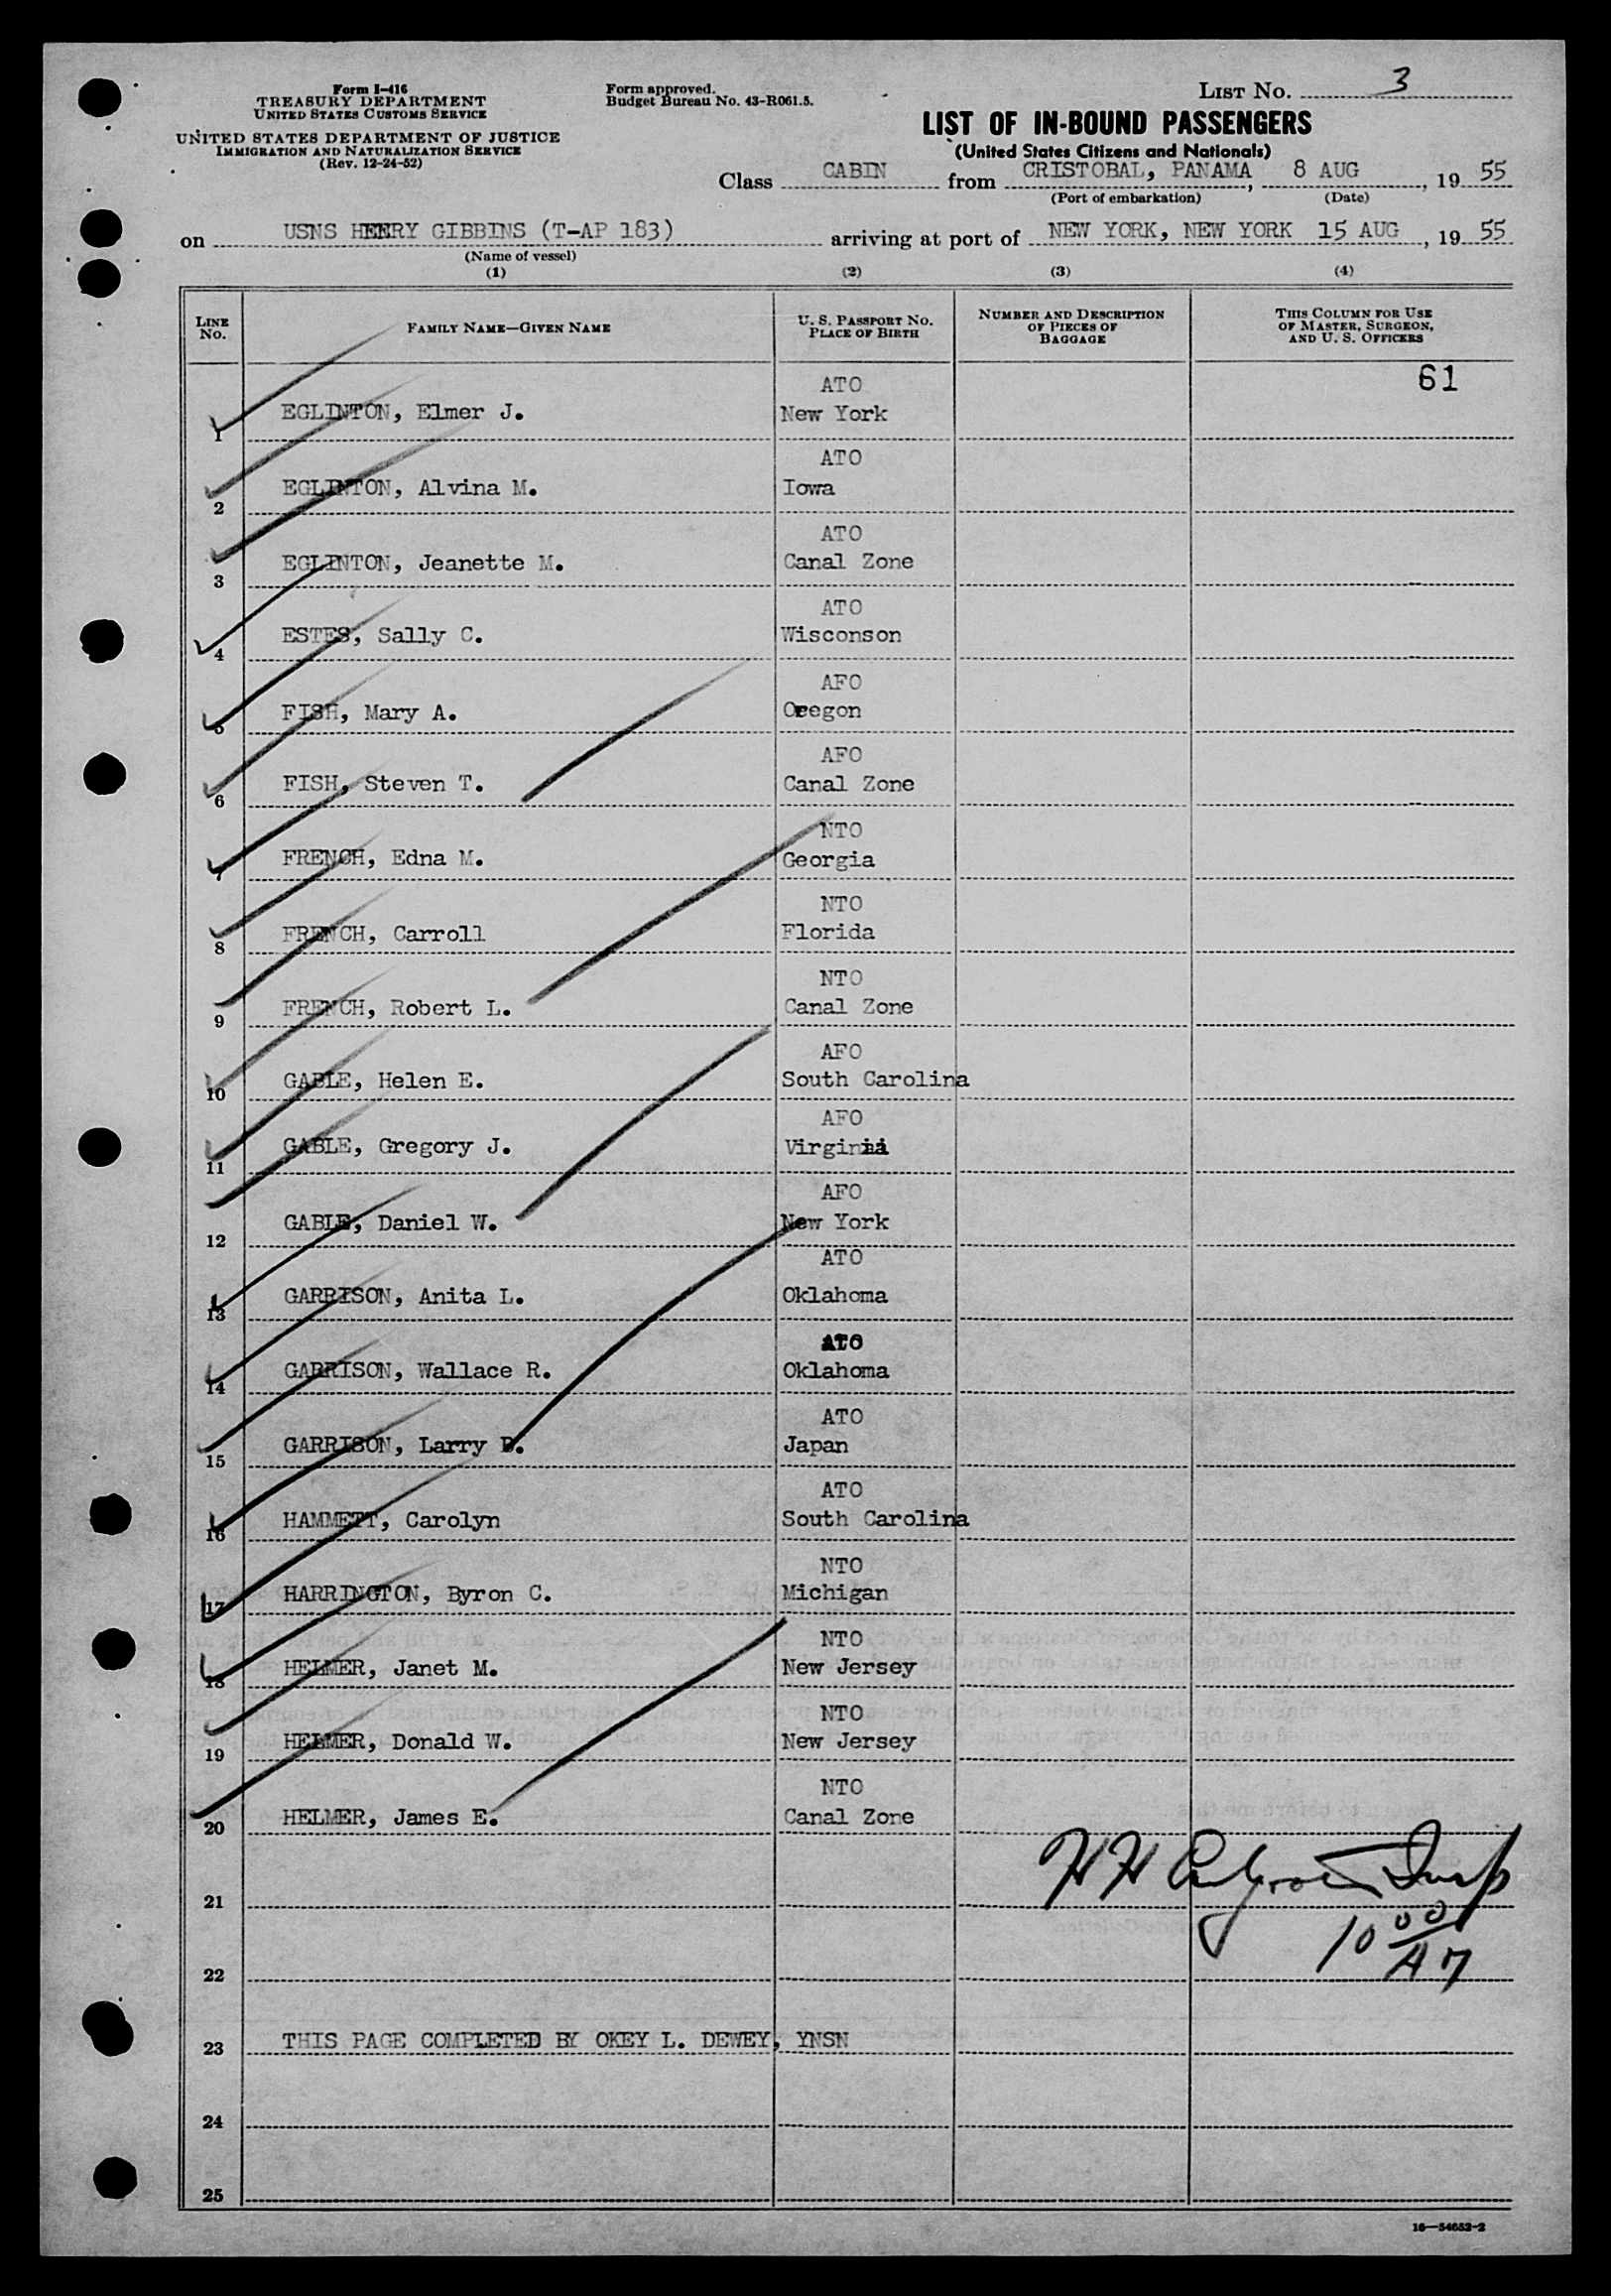 Form I-416
TREASURY DEPARTMENT
UNITED STATES CUSTOMS SERVICE
UNITED STATES DEPARTMENT OF JUSTICE
IMMIGRATION AND NATURALIZATION SERVICE
(Rev. 12-24-52)
Form approved.
Budget Bureau No. 43-R061.5.
LIST NO. 3
LIST OF IN-BOUND PASSENGERS
(United States Citizens and Nationals)
Class CABIN from CRISTOBAL, PANAMA, 8 AUG, 19 55
(Port of embarkation) (Date)
on USNS HENRY GIBBINS (T-AP 183) arriving at port of NEW YORK, NEW YORK 15 AUG, 19 55
(Name of vessel)
(1) (2) (3) (4)
LINE NO. FAMILY NAME—GIVEN NAME U. S. PASSPORT NO. PLACE OF BIRTH NUMBER AND DESCRIPTION OF PIECES OF BAGGAGE THIS COLUMN FOR USE OF MASTER, SURGEON, AND U. S. OFFICERS
61
ATO
1 EGLINTON, Elmer J. New York
ATO
2 EGLINTON, Alvina M. Iowa
ATO
3 EGLINTON, Jeanette M. Canal Zone
ATO
4 ESTES, Sally C. Wisconson
AFO
5 FISH, Mary A. Oregon
AFO
6 FISH, Steven T. Canal Zone
NTO
7 FRENCH, Edna M. Georgia
NTO
8 FRENCH, Carroll Florida
NTO
9 FRENCH, Robert L. Canal Zone
AFO
10 GABLE, Helen E. South Carolina
AFO
11 GABLE, Gregory J. Virginia
AFO
12 GABLE, Daniel W. New York
ATO
13 GARRISON, Anita L. Oklahoma
ATO
14 GARRISON, Wallace R. Oklahoma
ATO
15 GARRISON, Larry D. Japan
ATO
16 HAMMETT, Carolyn South Carolina
NTO
17 HARRINGTON, Byron C. Michigan
NTO
18 HELMER, Janet M. New Jersey
NTO
19 HELMER, Donald W. New Jersey
NTO
20 HELMER, James E. Canal Zone
21 H H Insp
10 00
22 A M
23 THIS PAGE COMPLETED BY OKEY L. DEWEY, YNSN
24
25
16—54652-2